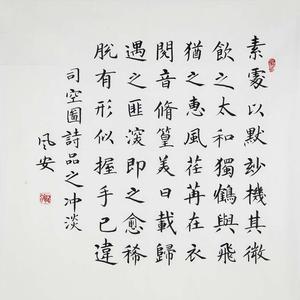 素處以默玅機其微
飲之太和獨鶴與飛
猶之惠風荏苒在衣
閱音脩篁美曰載歸
遇之匪深即之愈稀
脫有形似握手已違
司空圖詩品之冲淡
風安